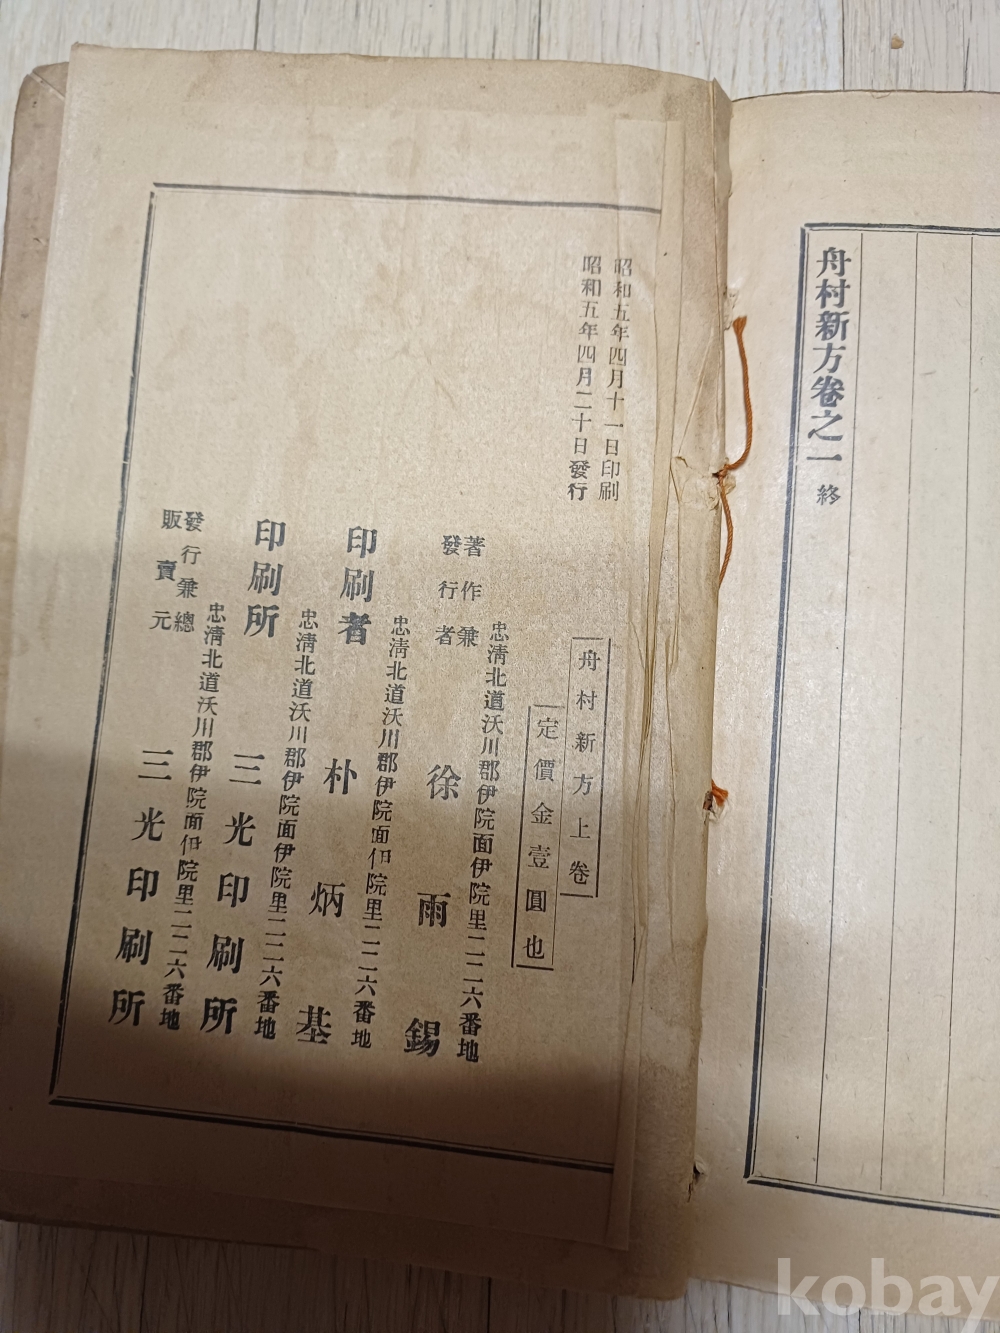 舟村新方卷之一 終
昭和五年四月十一日印刷
昭和五年四月二十日發行
舟村新方上卷
定價金壹圓也
忠淸北道沃川郡伊院面伊院里二二六番地
著作兼
發行者
徐雨錫
忠淸北道沃川郡伊院面伊院里二二六番地
印刷者
朴炳基
忠淸北道沃川郡伊院面伊院里二二六番地
印刷所
三光印刷所
忠淸北道沃川郡伊院面伊院里二二六番地
發行兼總
販賣元
三光印刷所
kobay